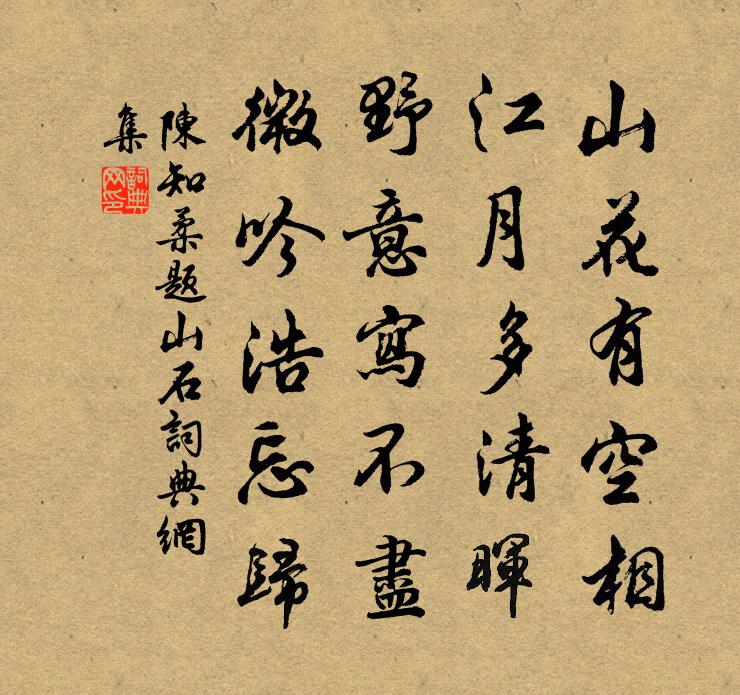 山花有空相
江月多清暉
野意寫不盡
微吟浩忘歸
陳知柔題山石詞典網
集
詞典網印